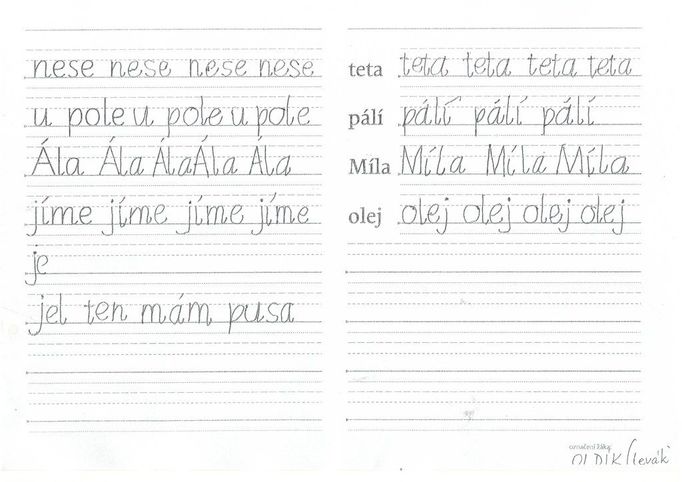 nese nese nese nese
u pole u pole u pole
Ála Ála Ála Ála Ála
jíme jíme jíme jíme
je
jel ten mám pusa
teta teta teta teta teta
pálí pálí pálí pálí
Míla Míla Míla Míla
olej olej olej olej olej
označení žáka:
OLDIK/levák